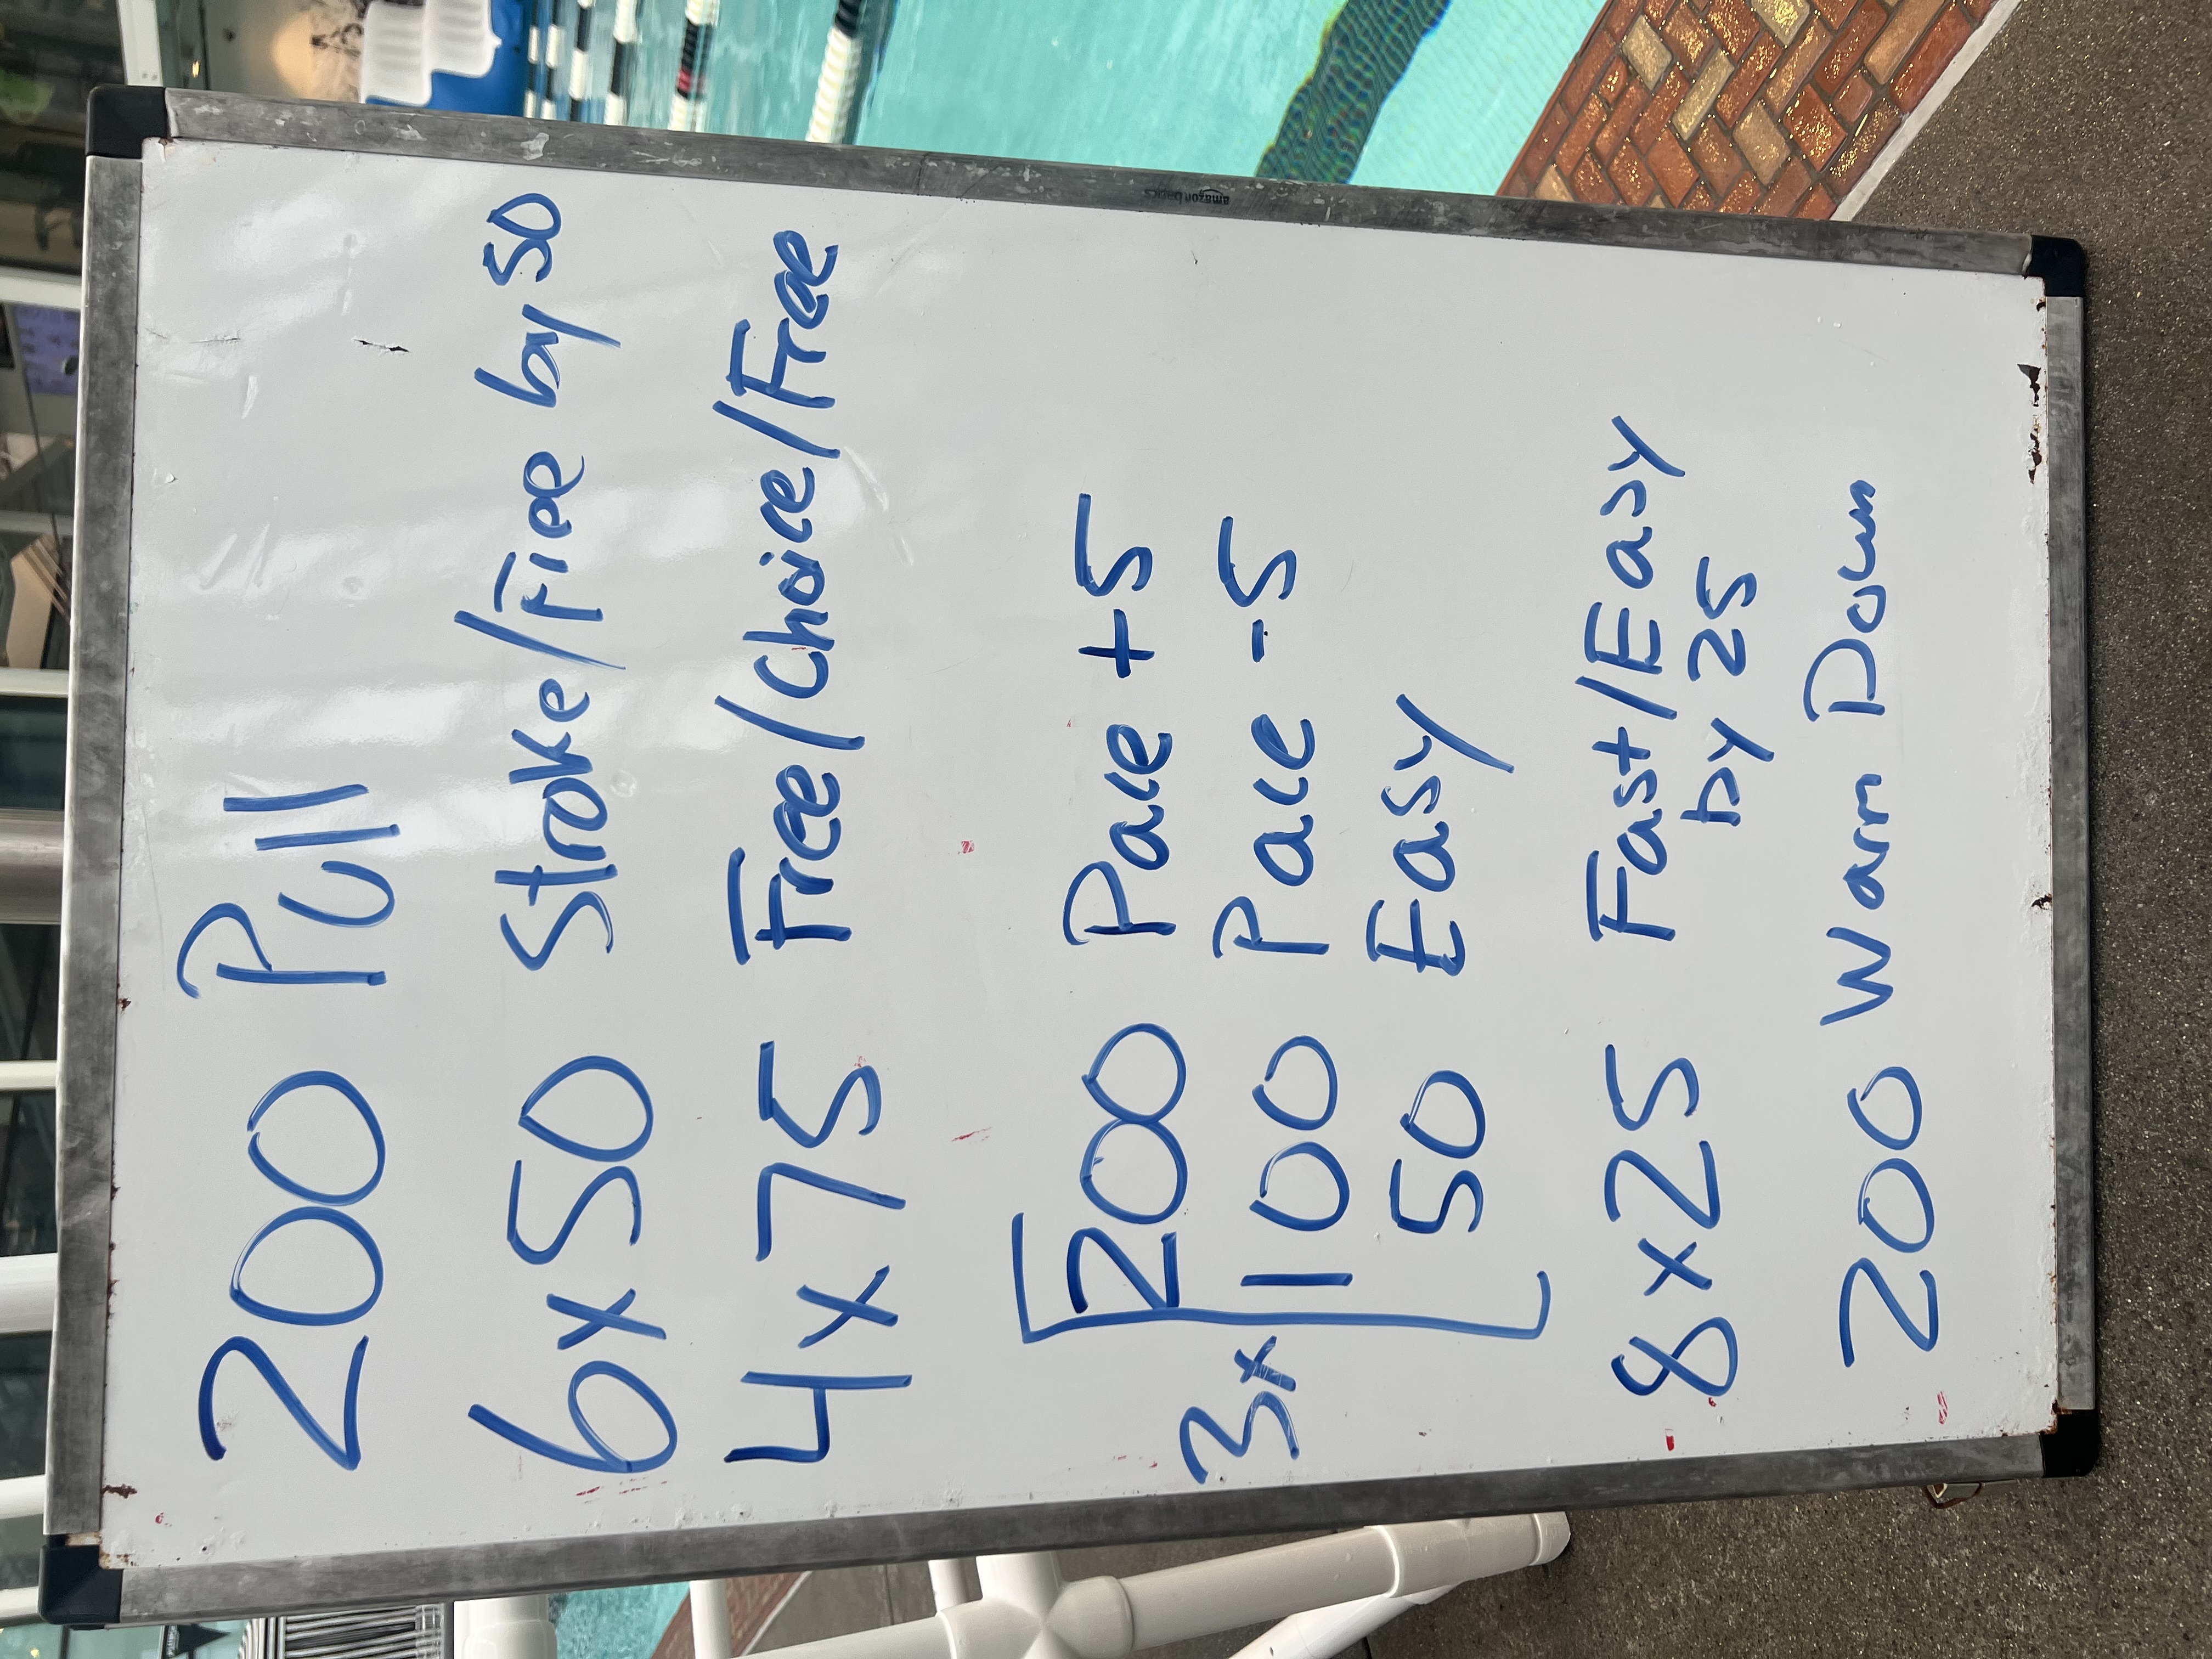 200 Pull
6x50 Stroke/Free by 50
4x75 Free/Choice/Free
3x [200 Pace +5
100 Pace -5
50 Easy
8x25 Fast/Easy
by 25
200 Warm Down
amazon basics